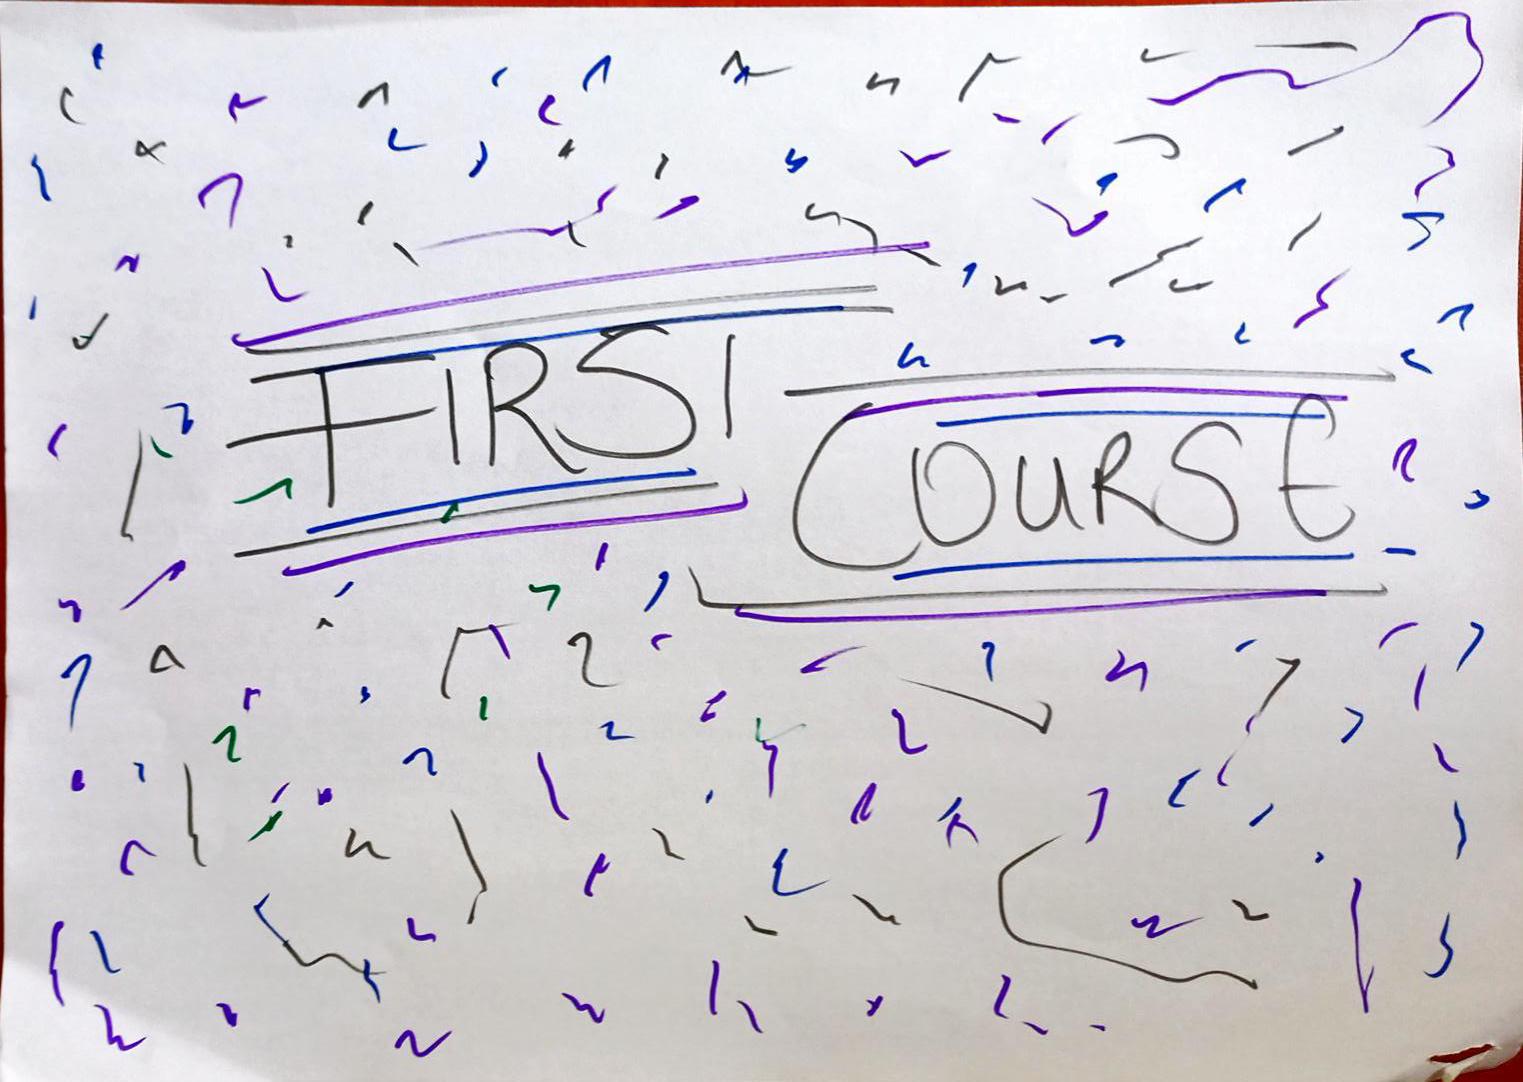 FIRST
COURSE